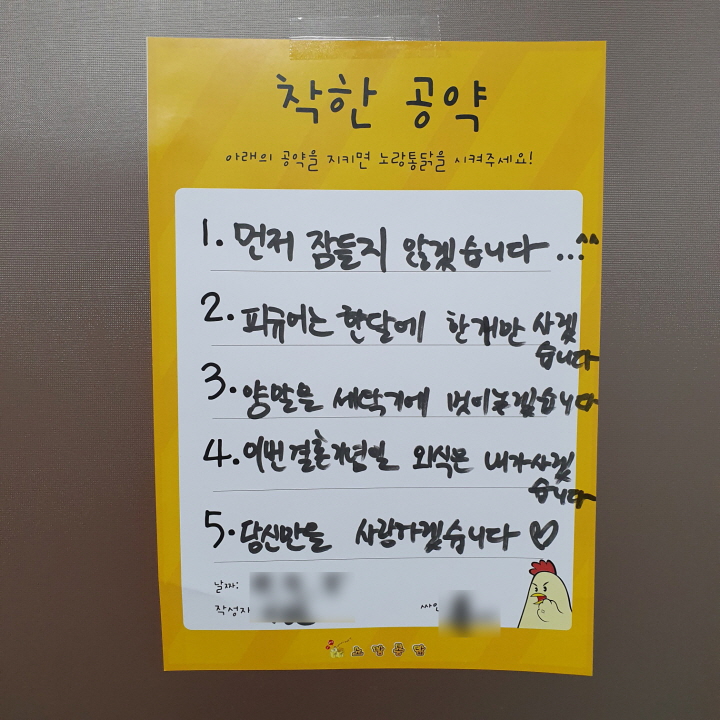 착한 공약
아래의 공약을 지키면 노랑통닭을 시켜주세요!
1. 먼저 잠들지 않겠습니다...^^
2. 피규어는 한달에 한개만 사겠
습니다
3. 양말을 세탁기에 벗어놓겠습니다
4. 이번 결혼기념일 외식은 내가사겠
습니다
5. 당신만을 사랑하겠습니다 ♡
날짜:
작성자
싸인
노랑통닭